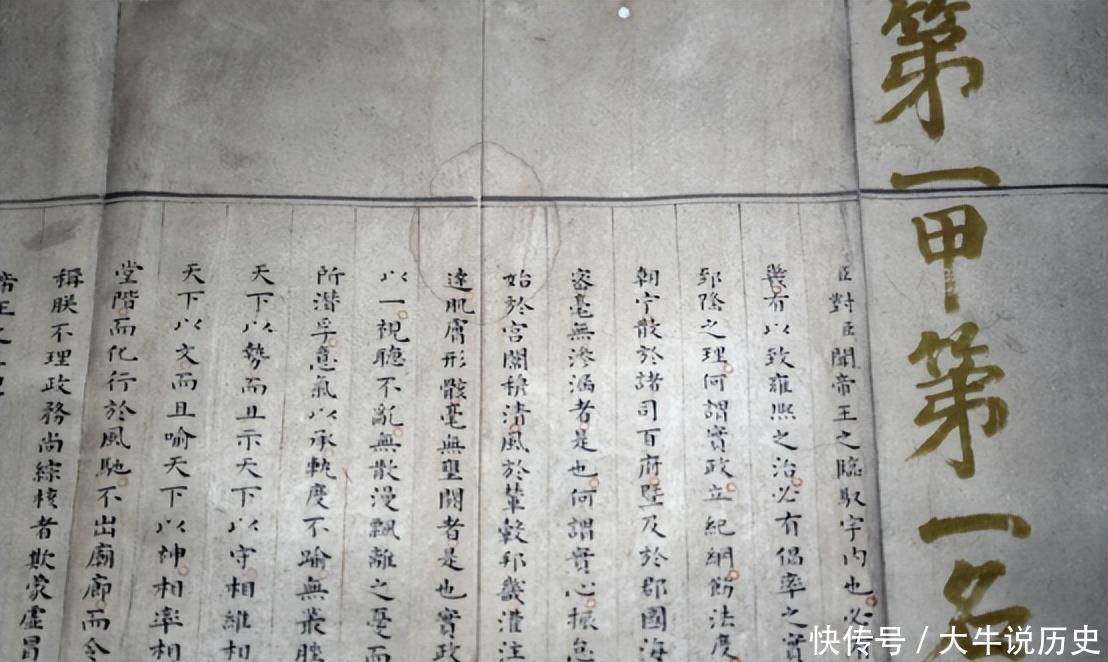 第一甲第一名
臣對臣聞帝王之臨馭宇內也必
與有以致雍熙之治必有倡率之實
郅隆之理何謂實政立紀綱飭法度
朝宁散於諸司百府暨及於郡國海
密毫無滲漏者是也何謂實心振怠
始於宮闈穆清風於輦轂邦畿灌注
達肌膚形骸毫無壅閼者是也實政
以一視聽不亂無散漫飄離之憂而
所潛孚意氣以承軌度不踰無叢脞
天下以勢而且示天下以守相維相
天下以文而且喻天下以神相率相
堂階而化行於風馳不出廟廊而令
稱朕不理政務尚綜核者欺蒙虛冒
帝王之
快传号/大牛说历史